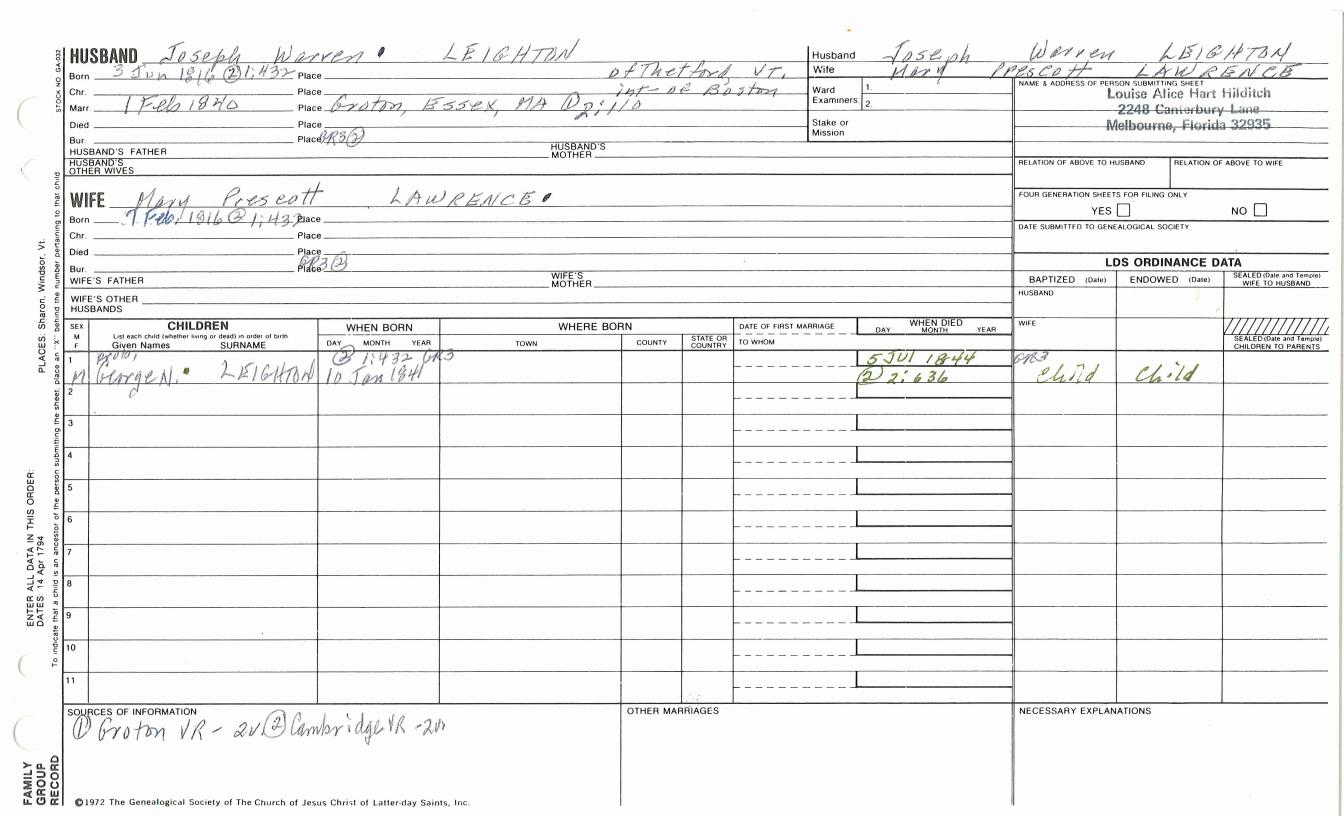 HUSBAND Joseph Warren LEIGHTON
Born 3 Jun 1816 ② 1:432 Place of Thetford, VT.
Chr. Place int- of Boston
Marr 1 Feb 1840 Place Groton, Essex, MA ① 2:110
Died Place
Bur. Place GR3 ②
HUSBAND'S FATHER HUSBAND'S MOTHER
HUSBAND'S OTHER WIVES
WIFE Mary Prescott LAWRENCE
Born 7 Feb. 1816 ② 1:432 Place
Chr. Place
Died Place
Bur. Place GR3 ②
WIFE'S FATHER WIFE'S MOTHER
WIFE'S OTHER HUSBANDS
Husband Joseph Warren LEIGHTON
Wife Mary Prescott LAWRENCE
Ward Examiners 1. 2.
Stake or Mission
NAME & ADDRESS OF PERSON SUBMITTING SHEET
Louise Alice Hart Hilditch
2248 Canterbury Lane
Melbourne, Florida 32935
RELATION OF ABOVE TO HUSBAND RELATION OF ABOVE TO WIFE
FOUR GENERATION SHEETS FOR FILING ONLY
YES NO
DATE SUBMITTED TO GENEALOGICAL SOCIETY
LDS ORDINANCE DATA
BAPTIZED (Date) ENDOWED (Date) SEALED (Date and Temple) WIFE TO HUSBAND
HUSBAND
WIFE
SEALED (Date and Temple) CHILDREN TO PARENTS
SEX M F
CHILDREN
List each child (whether living or dead) in order of birth
Given Names SURNAME
WHEN BORN
DAY MONTH YEAR
WHERE BORN
TOWN COUNTY STATE OR COUNTRY
DATE OF FIRST MARRIAGE
TO WHOM
WHEN DIED
DAY MONTH YEAR
1 ② 1:432 GR3 5 Jul 1844 GR3
M George N. LEIGHTON 10 Jan 1841 ② 2:636 Child Child
2
3
4
5
6
7
8
9
10
11
SOURCES OF INFORMATION
① Groton VR - 2v ② Cambridge VR - 2v
OTHER MARRIAGES
NECESSARY EXPLANATIONS
©1972 The Genealogical Society of The Church of Jesus Christ of Latter-day Saints, Inc.
STOCK NO. GA-032
To indicate that a child is an ancestor of the person submitting the sheet, place an "X" behind the number pertaining to that child
PLACES: Sharon, Windsor, Vt.
ENTER ALL DATA IN THIS ORDER:
DATES 14 Apr 1794
FAMILY GROUP RECORD